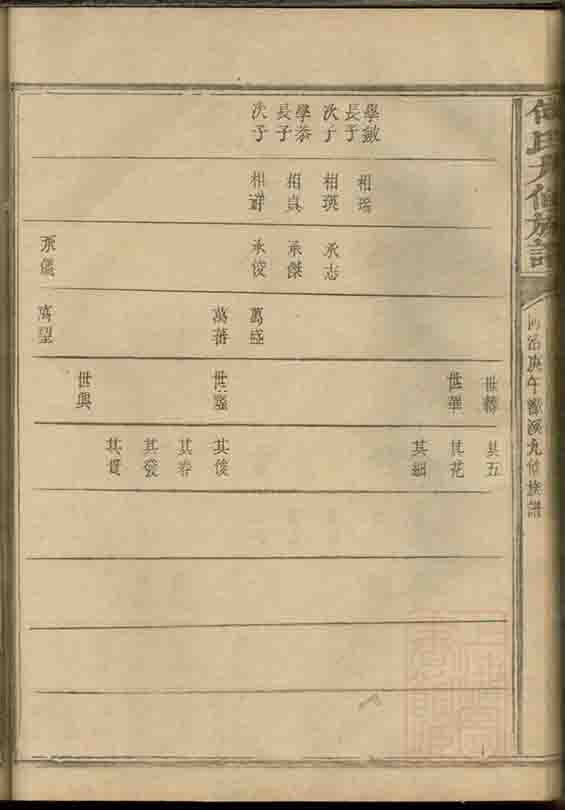 氏九修族譜
同治庚午 溪九修族譜
學敏
長子
次子
學恭
長子
次子
相瑞
相瑛
相貞
相祥
承志
承傑
承俊
承儀
萬盛
萬蕃
萬望
世
世華
世隆
世興
其五
其花
其細
其俊
其春
其發
其貴